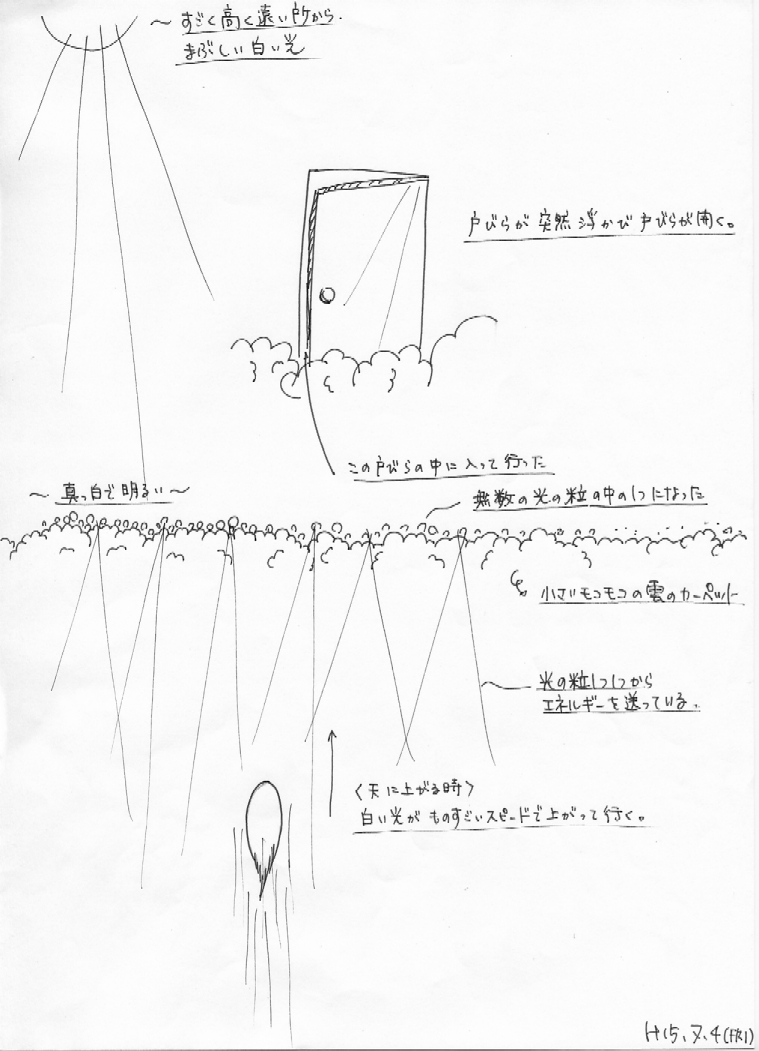 〜すごく高く遠い所から.
まぶしい白い光
戸びらが突然浮かび戸びらが開く。
この戸びらの中に入って行った
〜真っ白で明るい〜
無数の光の粒の中の1つになった
小さいモコモコの雲のカーペット
光の粒1つ1つから
エネルギーを送っている.
〈天に上がる時〉
白い光がものすごいスピードで上がって行く。
H15.7.4(FRI)